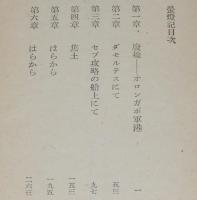 螢燈記目次
第一章 廢墟――オロンガポ軍港 一
第二章 ダモルテスにて 五三
第三章 セブ攻略の船上にて 九七
第四章 焦土 一五三
第五章 はらから 一九五
第六章 はらから 二六三